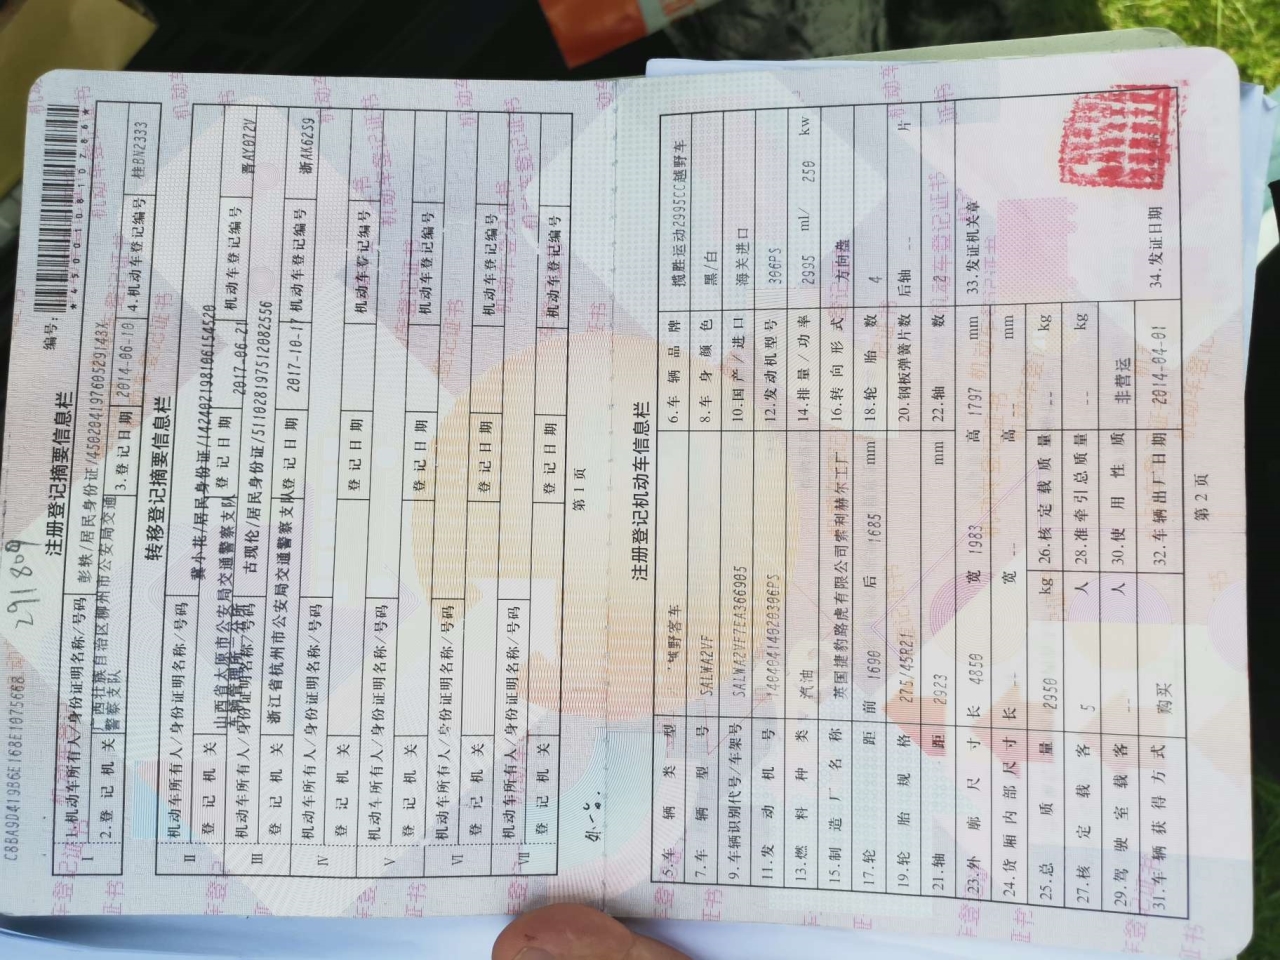 291809
C8BA9D41986E168E1075668
注册登记摘要信息栏
编号:
*450010810286*
Ⅰ 1.机动车所有人/身份证明名称/号码 彭轶/居民身份证/45020419760529148X
2.登记机关 广西壮族自治区柳州市公安局交通警察支队 3.登记日期 2014-06-10 4.机动车登记编号 桂BN2333
转移登记摘要信息栏
Ⅱ 机动车所有人/身份证明名称/号码 冀小花/居民身份证/142402198106154520
登记机关 山西省太原市公安局交通警察支队车辆管理所一分所 登记日期 2017-06-21 机动车登记编号 晋AY072V
Ⅲ 机动车所有人/身份证明名称/号码 古现伦/居民身份证/511028197512082556
登记机关 浙江省杭州市公安局交通警察支队 登记日期 2017-10-17 机动车登记编号 浙AK62S9
Ⅳ 机动车所有人/身份证明名称/号码
登记机关 登记日期 机动车登记编号
Ⅴ 机动车所有人/身份证明名称/号码
登记机关 登记日期 机动车登记编号
Ⅵ 机动车所有人/身份证明名称/号码
登记机关 登记日期 机动车登记编号
Ⅶ 机动车所有人/身份证明名称/号码
登记机关 登记日期 机动车登记编号
第1页
注册登记机动车信息栏
5.车辆类型 越野客车 6.车辆品牌 揽胜运动2995CC越野车
7.车辆型号 SALWA2VF 8.车身颜色 黑/白
9.车辆识别代号/车架号 SALWA2VF7EA366905 10.国产/进口 海关进口
11.发动机号 14040414020306PS 12.发动机型号 306PS
13.燃料种类 汽油 14.排量/功率 2995 ml/ 250 kw
15.制造厂名称 英国捷豹路虎有限公司索利赫尔工厂 16.转向形式 方向盘
17.轮距 前 1690 后 1685 mm 18.轮胎数 4
19.轮胎规格 275/45R21 20.钢板弹簧片数 后轴 -- 片
21.轴距 2923 mm 22.轴数 2
23.外廓尺寸 长 4850 宽 1983 高 1797 mm 33.发证机关章
24.货厢内部尺寸 长 -- 宽 -- 高 -- mm
25.总质量 2950 kg 26.核定载质量 -- kg
27.核定载客 5 人 28.准牵引总质量 -- kg
29.驾驶室载客 -- 人 30.使用性质 非营运
31.车辆获得方式 购买 32.车辆出厂日期 2014-04-01 34.发证日期
第2页